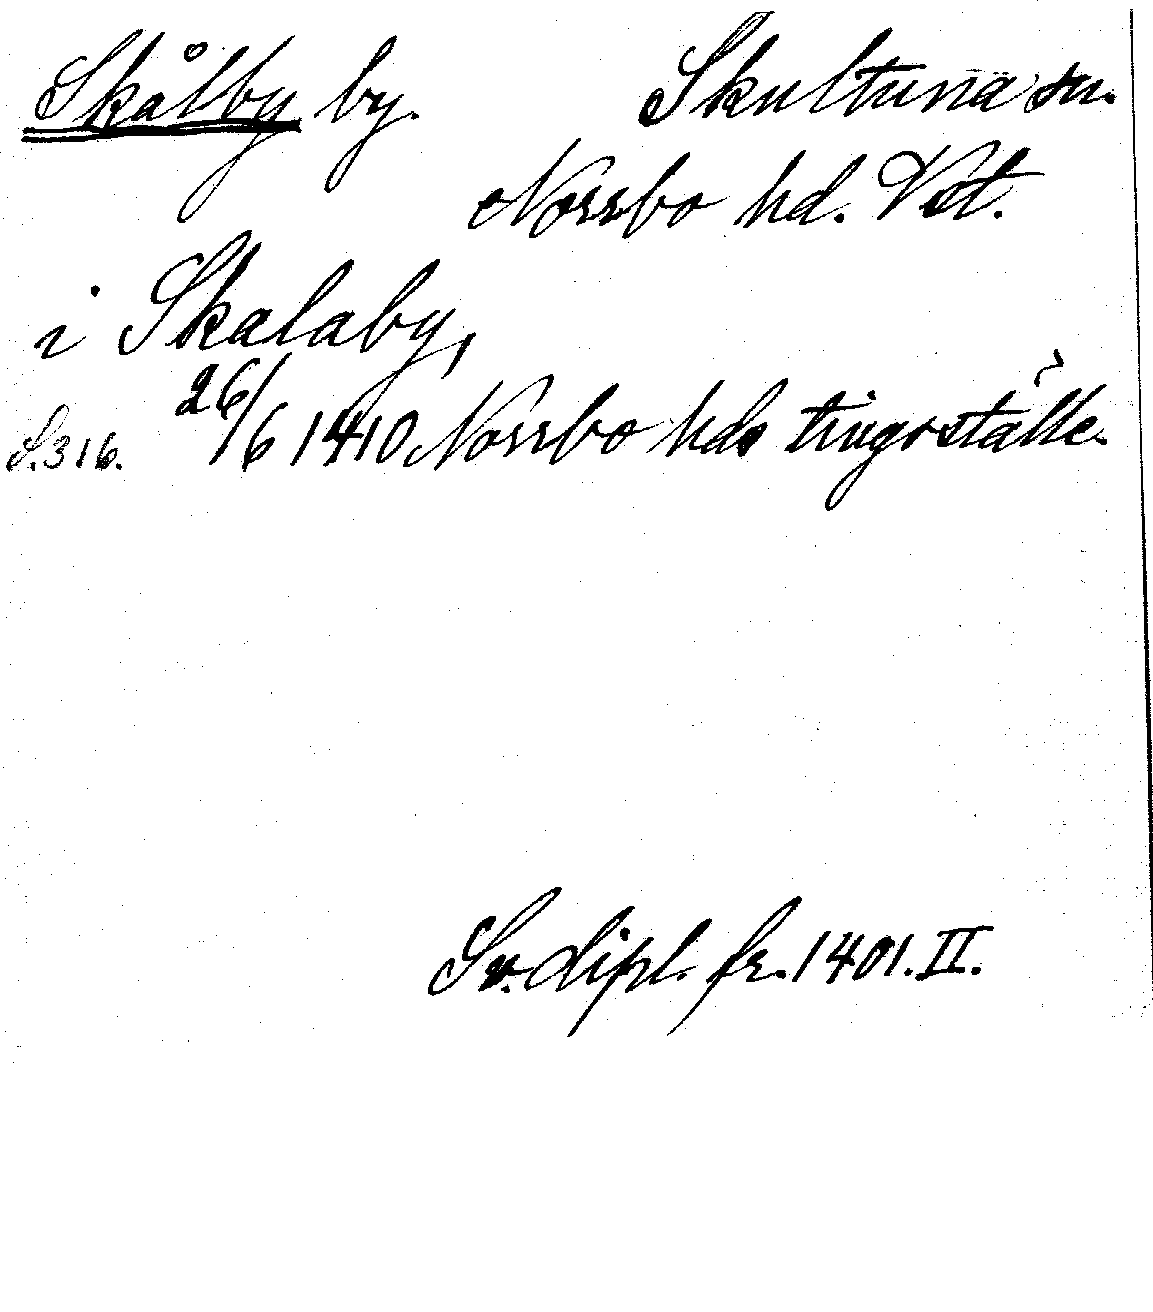 Skålby by. Skultuna sn.
Norrbo hd. Vst.
i Skalaby,
S. 316. 26/6 1410 Norrbo hds tingsställe.
Sv. dipl. fr. 1401. II.